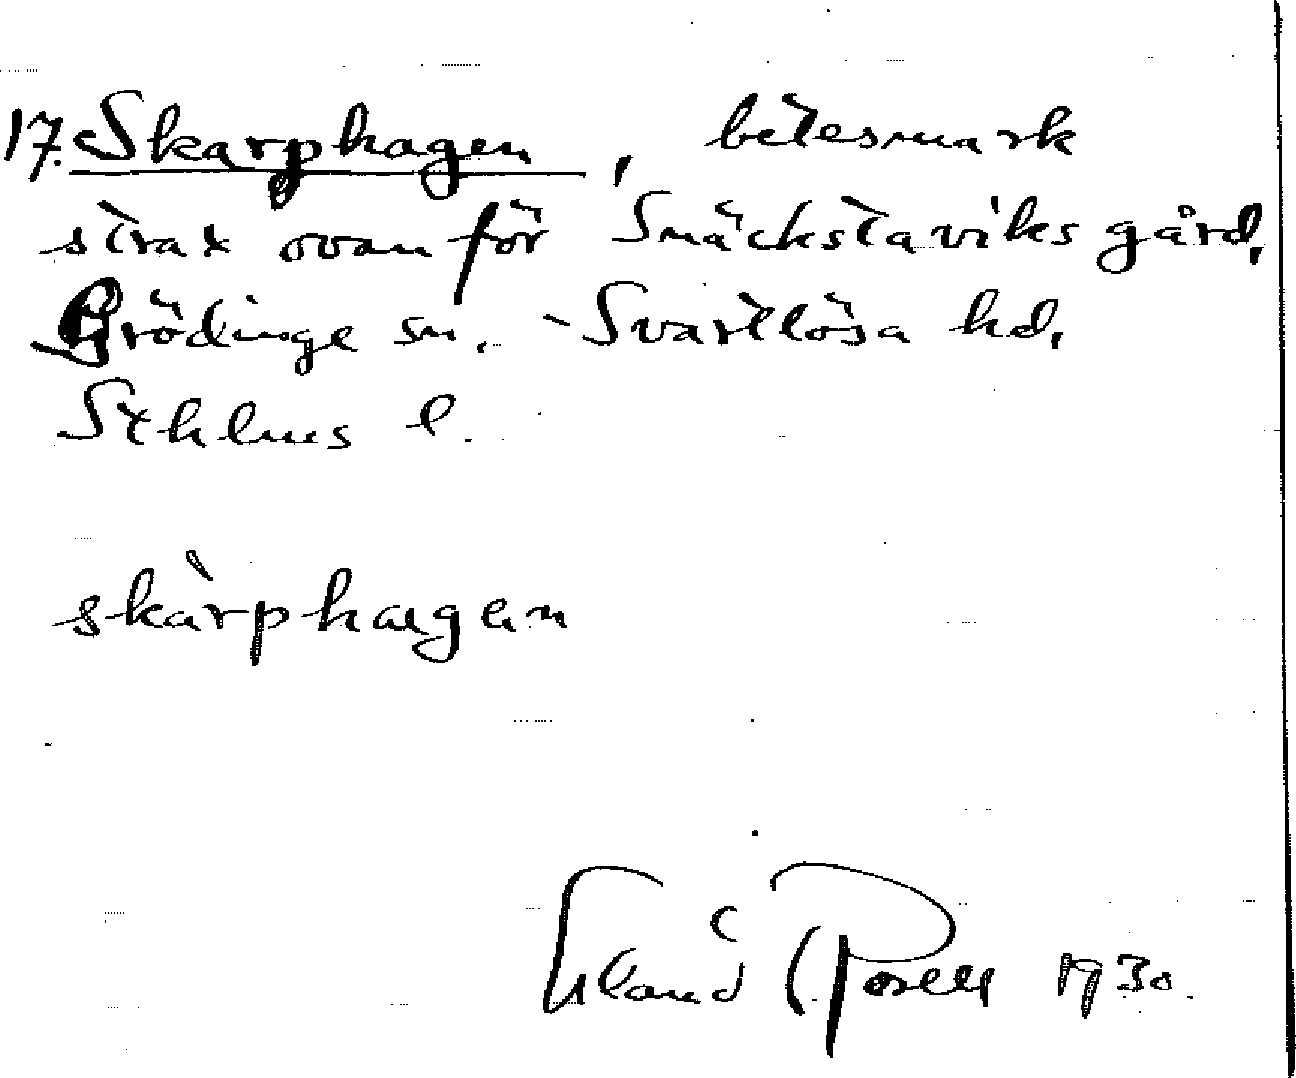 17. Skarphagen, betesmark
strax ovanför Snäckstaviks gård,
Grödinge sn. Svartlösa hd.
Sthlms l.
skàrphagen
1930.